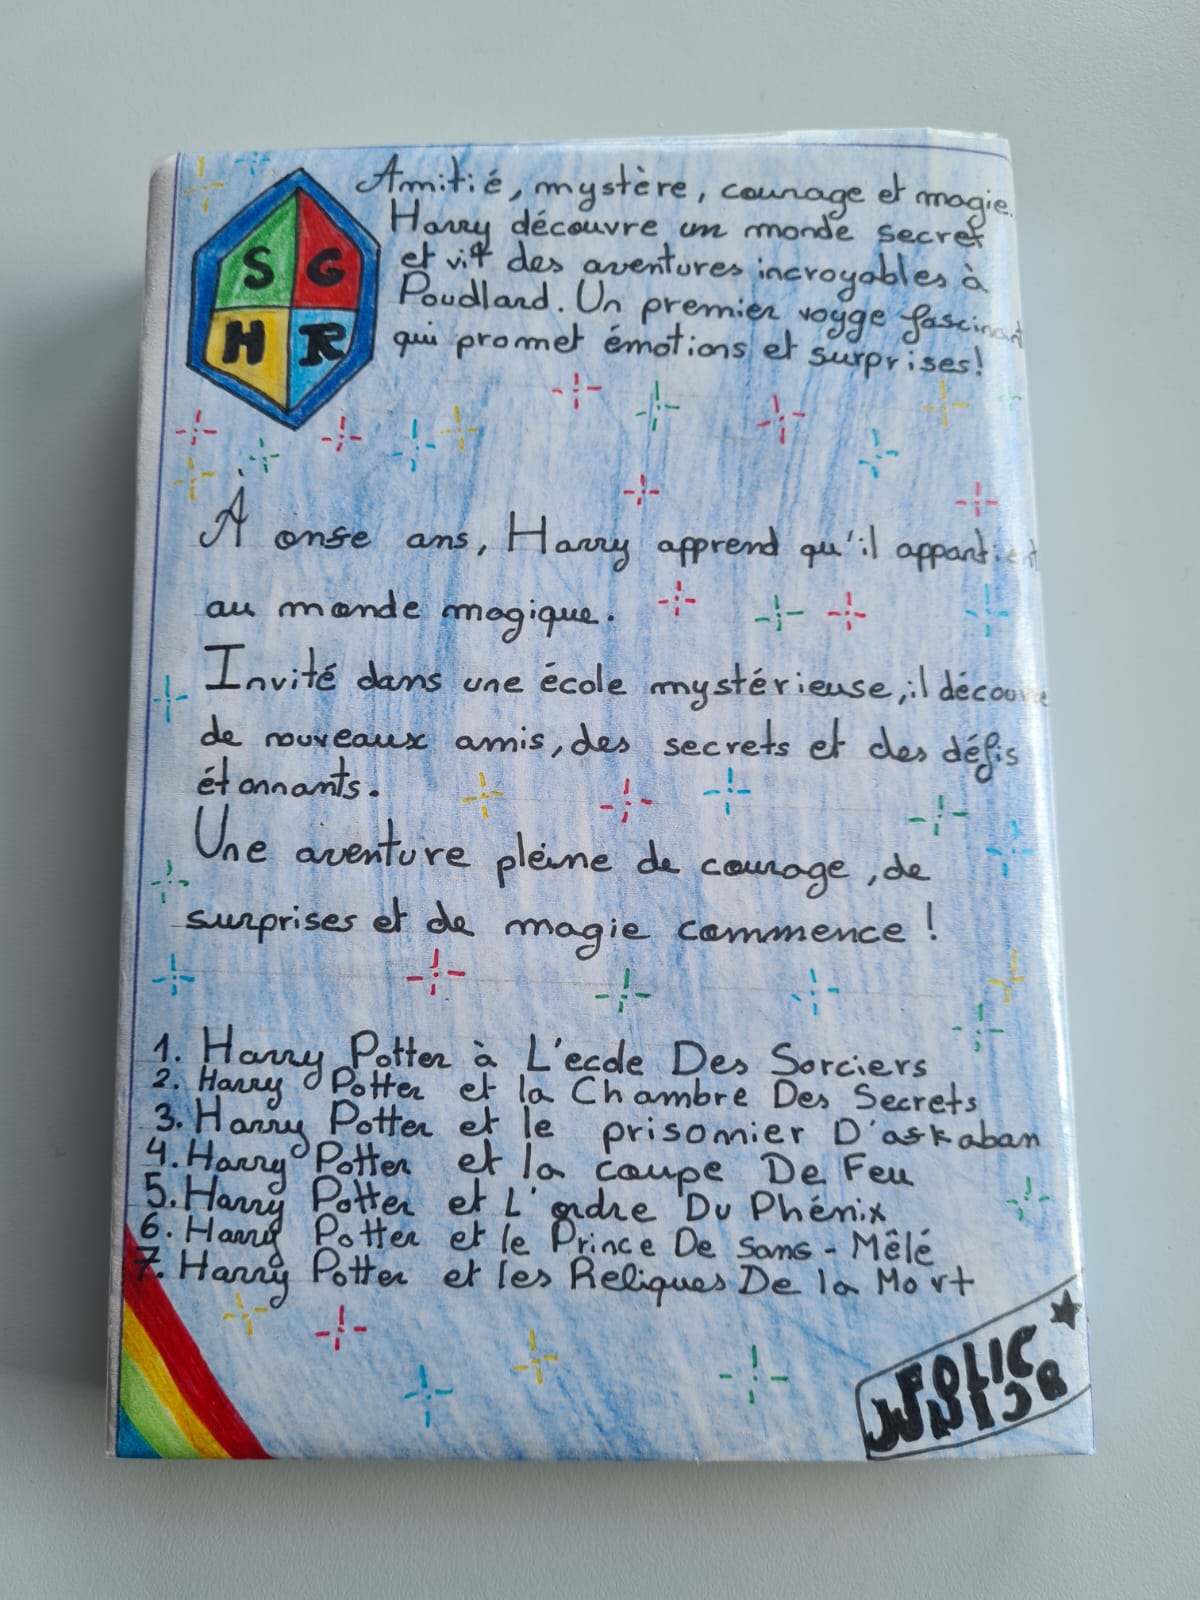 S G
H R
Amitié, mystère, courage et magie.
Harry découvre un monde secret
et vit des aventures incroyables à
Poudlard. Un premier voyge fascinant
qui promet émotions et surprises!
À onse ans, Harry apprend qu'il appartient
au monde magique.
Invité dans une école mystérieuse, il découvre
de nouveaux amis, des secrets et des défis
étonnants.
Une aventure pleine de courage, de
surprises et de magie commence !
1. Harry Potter à L'ecole Des Sorciers
2. Harry Potter et la Chambre Des Secrets
3. Harry Potter et le prisonnier D'askaban
4. Harry Potter et la coupe De Feu
5. Harry Potter et L'ordre Du Phénix
6. Harry Potter et le Prince De Sans-Mêlé
7. Harry Potter et les Reliques De la Mort
FOLIC